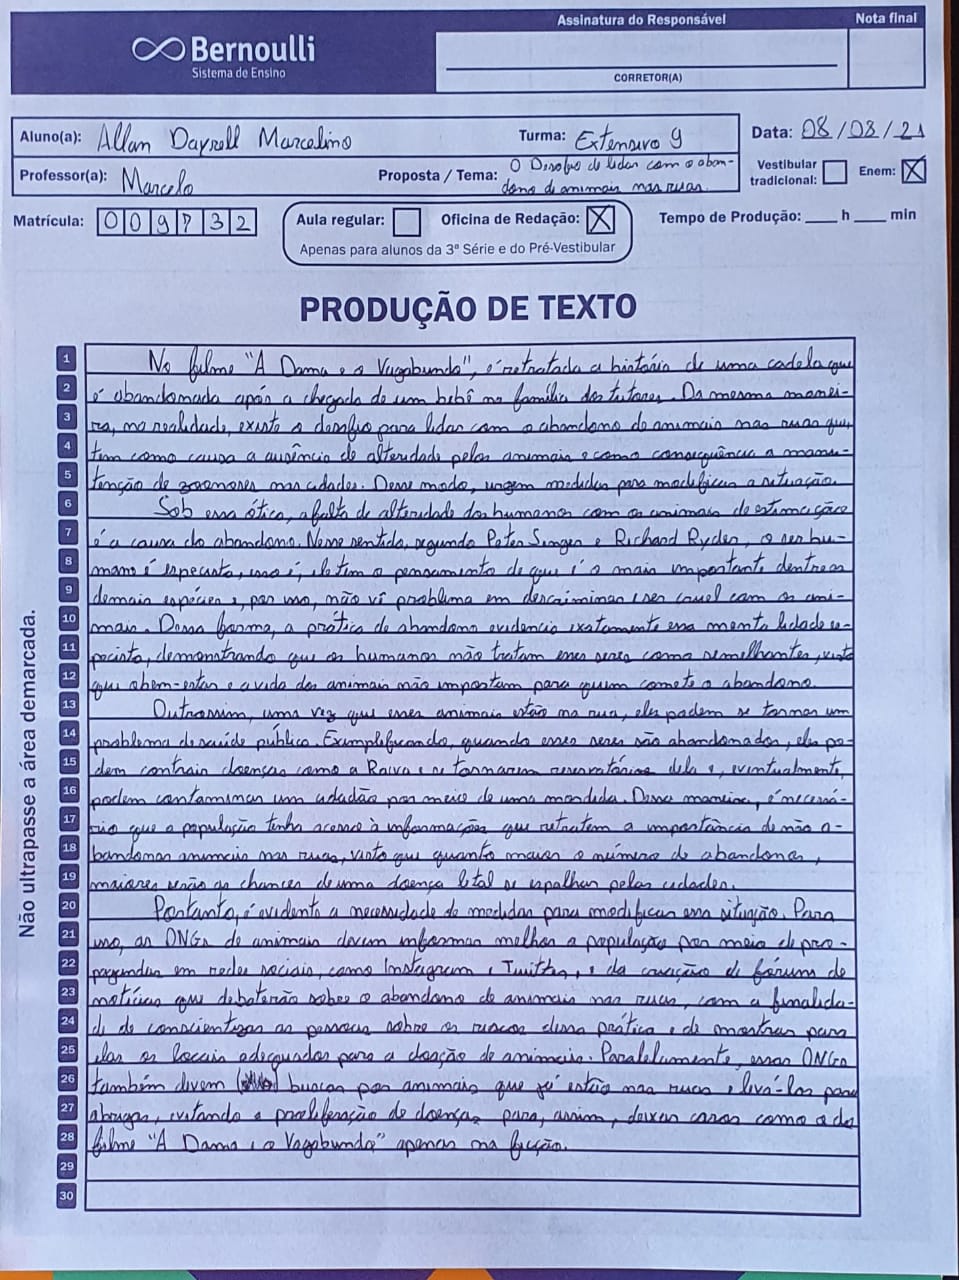 Assinatura do Responsável
Nota final
Bernoulli
Sistema de Ensino
CORRETOR(A)
Aluno(a): Allan Dayrell Marcelino
Turma: Extensivo 9
Data: 08/03/21
Professor(a): Marcelo
Proposta / Tema: O Desafio de lidar com o aban-
dono de animais nas ruas.
Vestibular tradicional:
Enem: X
Matrícula: 009732
Aula regular:
Oficina de Redação: X
Apenas para alunos da 3ª Série e do Pré-Vestibular
Tempo de Produção: ____ h ____ min
PRODUÇÃO DE TEXTO
Não ultrapasse a área demarcada.
1 No filme "A Dama e o Vagabundo", é retratada a história de uma cadela que
2 é abandonada após a chegada de um bebê na família dos tutores. Da mesma manei-
3 ra, na realidade, existe o desafio para lidar com o abandono de animais nas ruas que,
4 tem como causa a ausência de alteridade pelos animais e como consequência a manu-
5 tenção de zoonoses nas cidades. Desse modo, urgem medidas para modificar a situação.
6 Sob essa ótica, a falta de alteridade dos humanos com os animais de estimação
7 é a causa do abandono. Nesse sentido, segundo Peter Singer e Richard Ryder, o ser hu-
8 mano é especista, isso é, ele tem o pensamento de que é o mais importante dentre as
9 demais espécies e, por isso, não vê problema em descriminar e ser cruel com os ani-
10 mais. Dessa forma, a prática do abandono evidencia exatamente essa mentalidade es-
11 pecista, demonstrando que os humanos não tratam esses seres como semelhantes, visto
12 que o bem-estar e a vida dos animais não importam para quem comete o abandono.
13 Outrossim, uma vez que esses animais estão na rua, eles podem se tornar um
14 problema de saúde pública. Exemplificando, quando esses seres são abandonados, eles po-
15 dem contrair doenças como a Raiva e se tornarem reservatórios dela e, eventualmente,
16 podem contaminar um cidadão por meio de uma mordida. Dessa maneira, é necessá-
17 rio que a população tenha acesso à informações que retratem a importância de não a-
18 bandonar animais nas ruas, visto que quanto maior o número de abandonos,
19 maiores serão as chances de uma doença letal se espalhar pelas cidades.
20 Portanto, é evidente a necessidade de medidas para modificar essa situação. Para
21 isso, as ONGs de animais devem informar melhor a população por meio de pro-
22 pagandas em redes sociais, como Instagram e Twitter, e da criação de fórum de
23 notícias que debaterão sobre o abandono de animais nas ruas, com a finalida-
24 de de conscientizar as pessoas sobre os riscos dessa prática e de mostrar para
25 elas os locais adequados para a doação de animais. Paralelamente, essas ONGs
26 também devem buscar por animais que já estão nas ruas e levá-los para
27 abrigos, evitando a proliferação de doenças para, assim, deixar casos como o do
28 filme "A Dama e o Vagabundo" apenas na ficção.
29
30